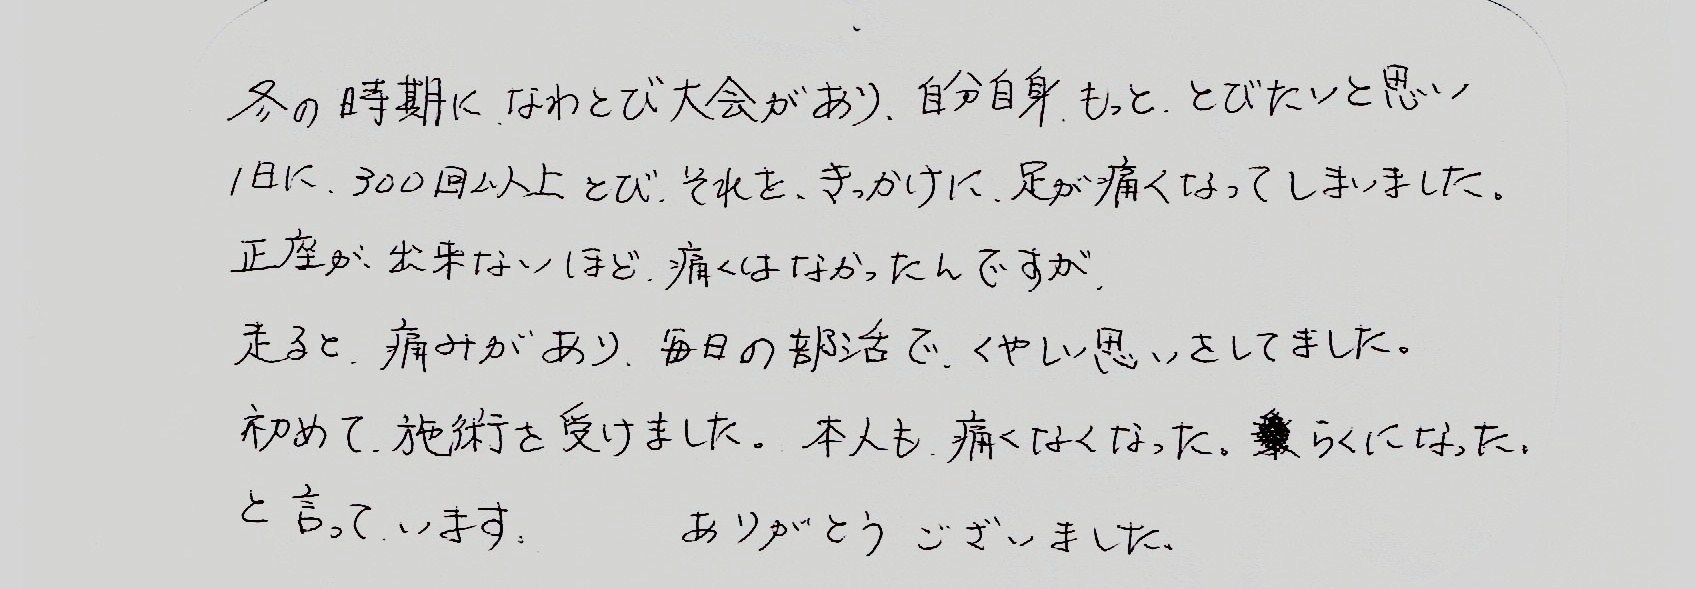 冬の時期に、なわとび大会があり、自分自身、もっと、とびたいと思い
1日に、300回以上とび、それを、きっかけに、足が痛くなってしまいました。
正座が、出来ないほど、痛くはなかったんですが、
走ると、痛みがあり、毎日の部活で、くやしい思いをしてました。
初めて、施術を受けました。本人も、痛くなくなった。らくになった。
と言って、います。 ありがとうございました。